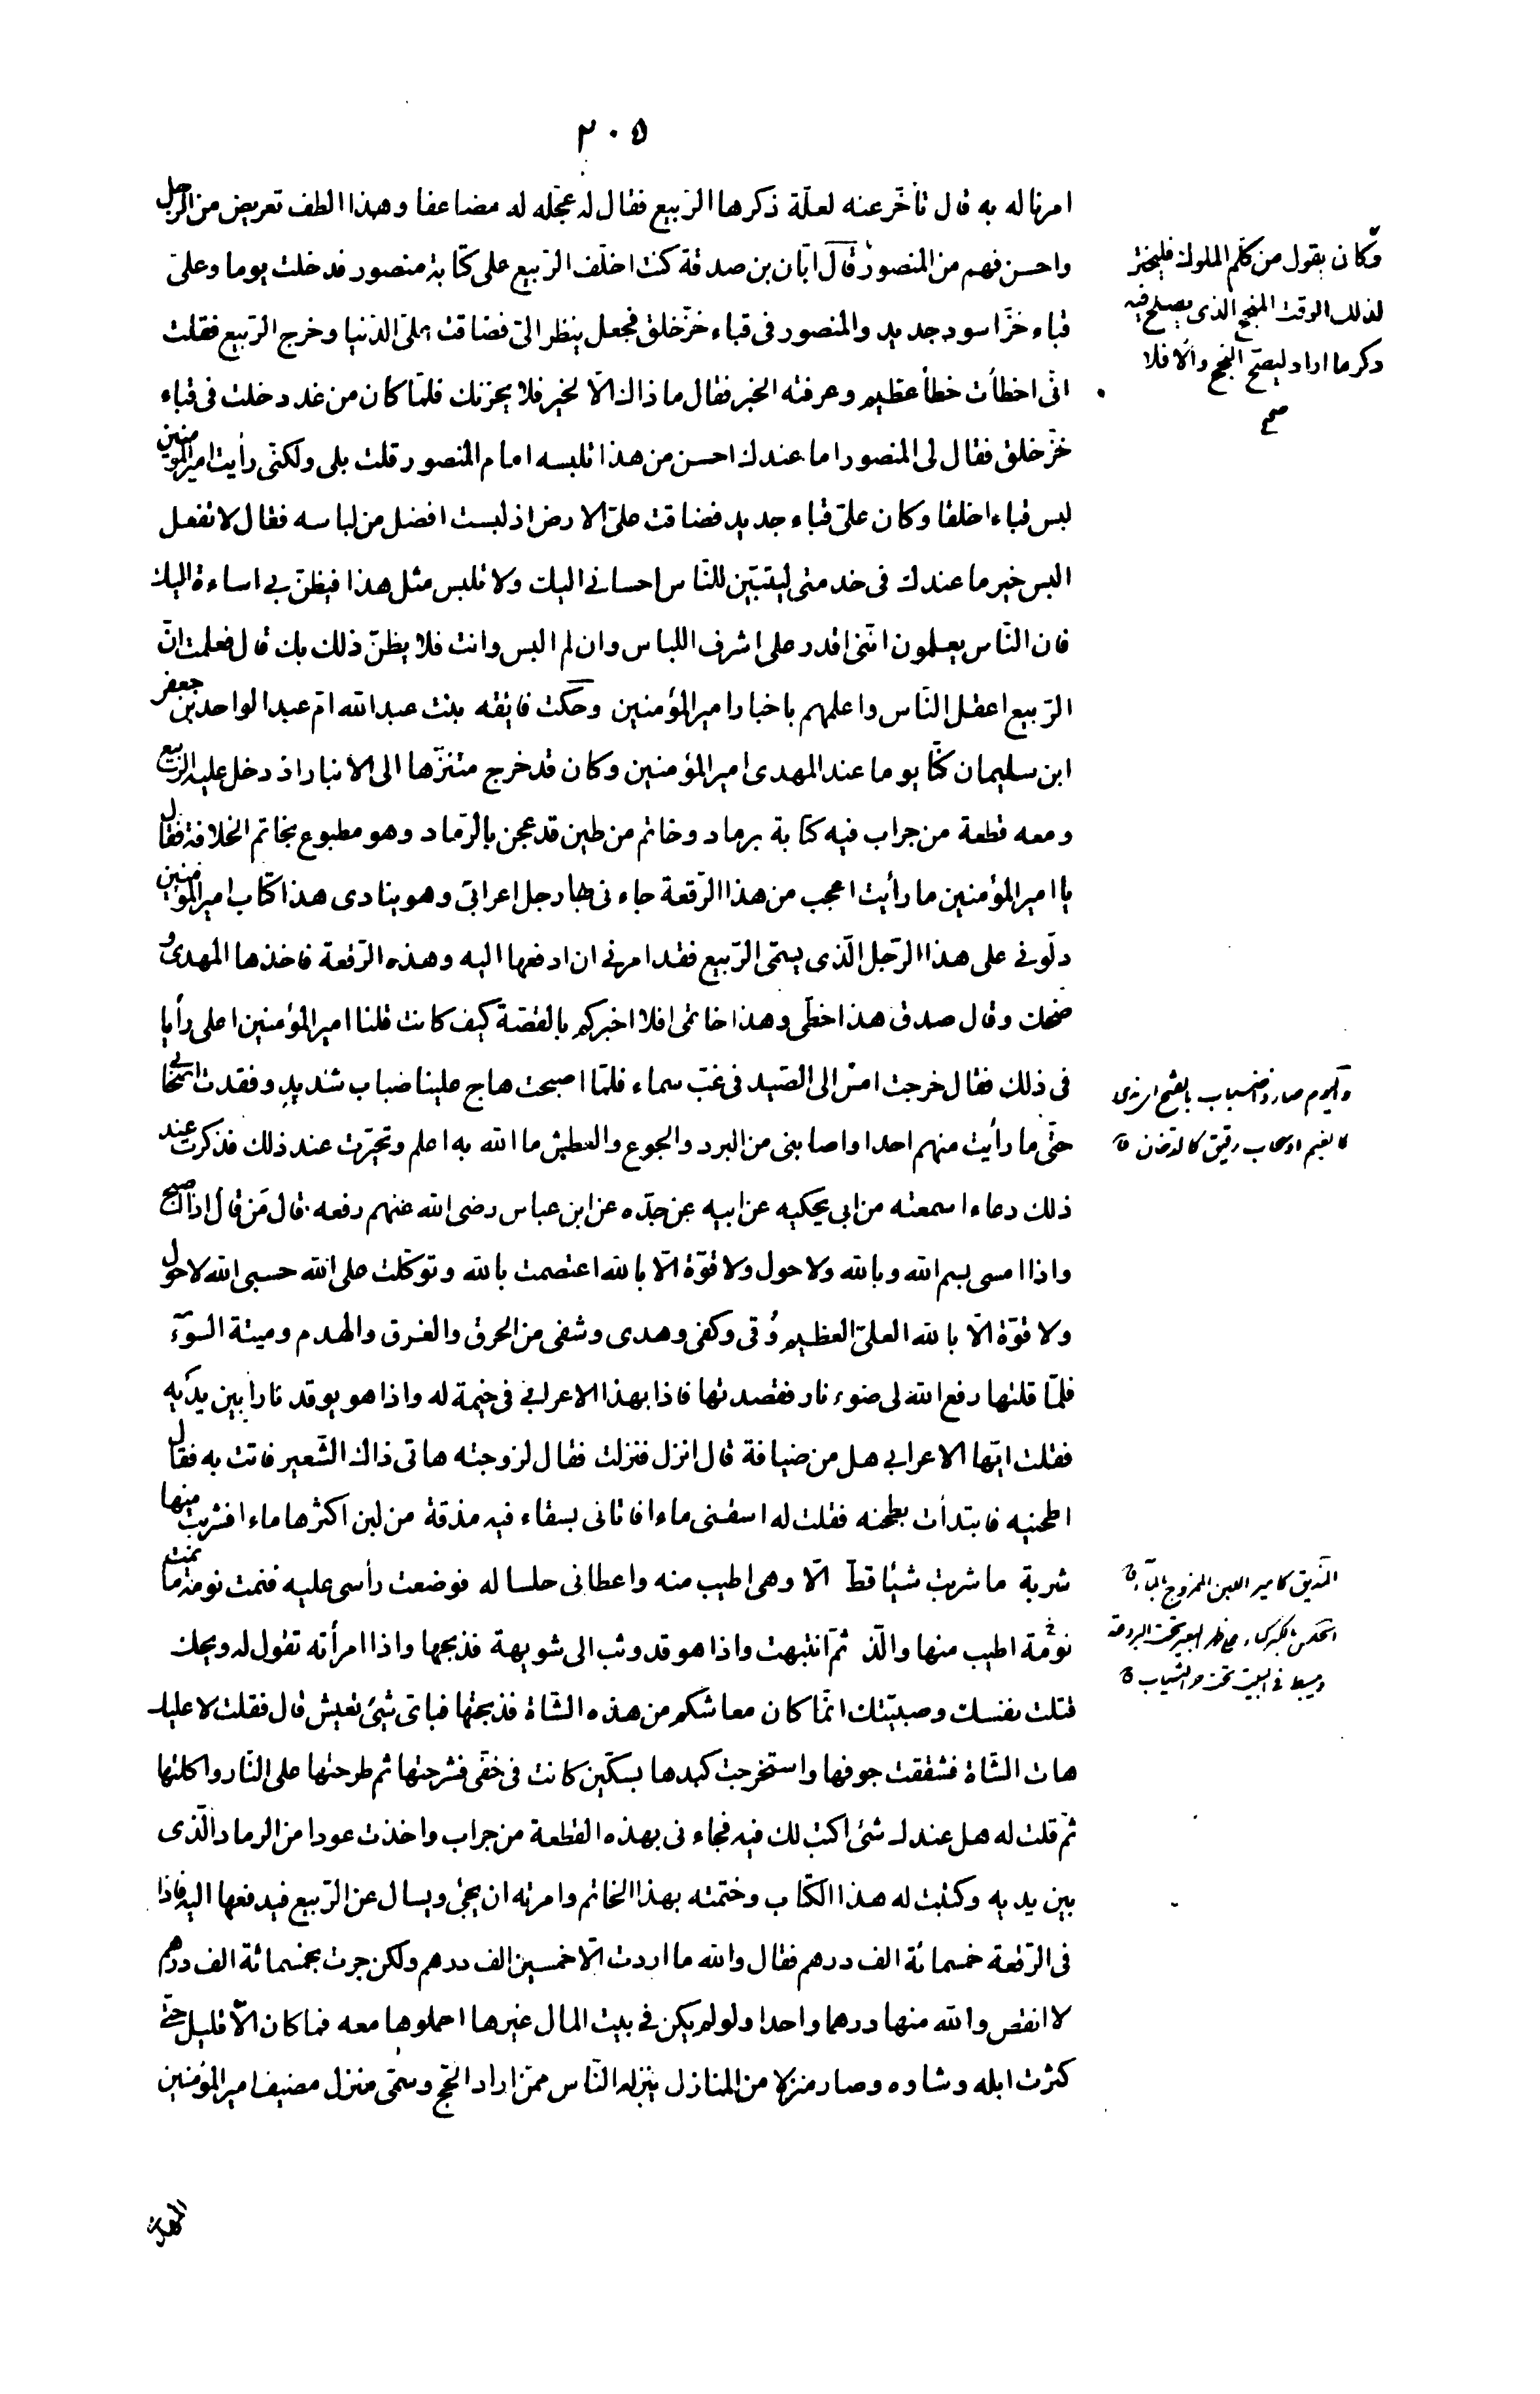 ٢٠٥
امرنا له به قال تأخّر عنه لعلّة ذكرها الرّبيع فقال له عجّله له مضاعفا وهذا الطف تعريض من الرجل
واحسن فهم من المنصور قال ابّان بن صدقة كنت اخلّف الرّبيع على كتابة منصور فدخلت يوما وعليّ
قباء خزّ اسود جديد والمنصور في قباء خزّ خلق فجعل ينظر اليّ فضاقت عليّ الدّنيا وخرج الرّبيع فقلت
انّي اخطأت خطأ عظيم وعرفته الخبر فقال ما ذاك الّا لخير فلا يحزنك فلمّا كان من غد دخلت في قباء
خزّ خلق فقال لي المنصور اما عندك احسن من هذا تلبسه امام المنصور قلت بلى ولكنّي رأيت امير المؤمنين
لبس قباءا خلقا وكان عليّ قباء جديد فضاقت عليّ الارض اذ لبست افضل من لباسه فقال لا تفعل
البس خير ما عندك في خدمتي ليتبيّن للنّاس احساني اليك ولا تلبس مثل هذا فيظنّ بي اساءة اليك
فان النّاس يعلمون انّني اقدر على اشرف اللباس وان لم البس وانت فلا يظنّ ذلك بك قال فعلمت انّ
الرّبيع اعقل النّاس واعلمهم باخبار امير المؤمنين وحكت فايقه بنت عبد الله امّ عبد الواحد بن جعفر
ابن سليمان كنّا يوما عند المهدى امير المؤمنين وكان قد خرج متنزّها الى الانبار اذ دخل عليه الرّبيع
ومعه قطعة من جراب فيه كتابة برماد وخاتم من طين قد عجن بالرّماد وهو مطبوع بخاتم الخلافة فقال
يا امير المؤمنين ما رأيت اعجب من هذا الرّقعة جاءنى بها رجل اعرابيّ وهو ينادى هذا كتاب امير المؤمنين
دلّوني على هذا الرّجل الّذى يسمّى الرّبيع فقد امرني ان ادفعها اليه وهذه الرّقعة فاخذها المهدى و
ضحك وقال صدق هذا خطّى وهذا خاتمى افلا اخبركم بالقصّة كيف كانت قلنا امير المؤمنين اعلى رأيا
في ذلك فقال خرجت امس الى الصّيد في غبّ سماء فلمّا اصبحت هاج علينا ضباب شديد وفقدت اصحابي
حتّى ما رأيت منهم احدا واصابنى من البرد والجوع والعطش ما الله به اعلم وتحيّرت عند ذلك فذكرت عند
ذلك دعاءا سمعته من ابى يحكيه عن ابيه عن جدّه عن ابن عباس رضى الله عنهم رفعه قال مَن قال اذا اصبح
واذا امسى بسم الله وبالله ولا حول ولا قوّة الّا بالله اعتصمت بالله وتوكّلت على الله حسبى الله لا حول
ولا قوّة الّا بالله العليّ العظيم وُقى وكفى وهدى وشفى من الحرق والغرق والهدم وميتة السوٓء
فلمّا قلتها رفع الله لى ضوء نار فقصدتها فاذا بهذا الاعرابي في خيمة له واذا هو يوقد نارا بين يديه
فقلت ايّها الاعرابي هل من ضيافة قال انزل فنزلت فقال لزوجته هاتى ذاك الشّعير فاتت به فقال
اطحنيه فابتدأت بطحنه فقلت له اسقنى ماءا فاتانى بسقاء فيه مذقة من لبن اكثرها ماءا فشربت منها
شربة ما شربت شيئا قطّ الّا وهى اطيب منه واعطانى حلسا له فوضعت رأسى عليه فنمت نومة ما نمت
نومة اطيب منها والّذ ثمّ انتبهت واذا هو قد وثب الى شويهة فذبحها واذا امرأته تقول له ويحك
قتلت نفسك وصبيّتك انّما كان معاشكم من هذه الشّاة فذبحتها فباىّ شئ نعيش قال فقلت لا عليك
هات الشّاة فشققت جوفها واستخرجت كبدها بسكّين كانت في خفّى فشرحتها ثم طرحتها على النّار واكلتها
ثمّ قلت له هل عندك شئ اكتب لك فيه فجاءنى بهذه القطعة من جراب واخذت عودا من الرماد الّذى
بين يديه وكتبت له هذا الكتاب وختمته بهذا الخاتم وامرته ان يجئ ويسال عن الرّبيع فيدفعها اليه فاذا
في الرّقعة خمسمائة الف درهم فقال والله ما اردت الّا خمسين الف درهم ولكن جرت بخمسمائة الف درهم
لا انقص والله منها درهما واحدا ولو لم يكن في بيت المال غيرها احملوها معه فما كان الّا قليل حتّى
كثرت ابله وشاوه وصار منزلا من المنازل ينزله النّاس ممّن اراد الحّج وسمّى منزل مضيف امير المؤمنين
وكان يقول من كلّم الملوك فليختر
لذلك الوقت المنجح الذى يصلح فيه
ذكر ما اراد ليصحّ النجح والّا فلا
صح
واليوم صار ذا ضباب بالفتح اى ندى
كالغيم او سحاب رقيق كالدخان
المذيق كامير اللبن الممزوج بالمآء
الحلس بالكسر كساء على ظهر البعير تحت البردعة
ويبسط فى البيت تحت حر الثياب